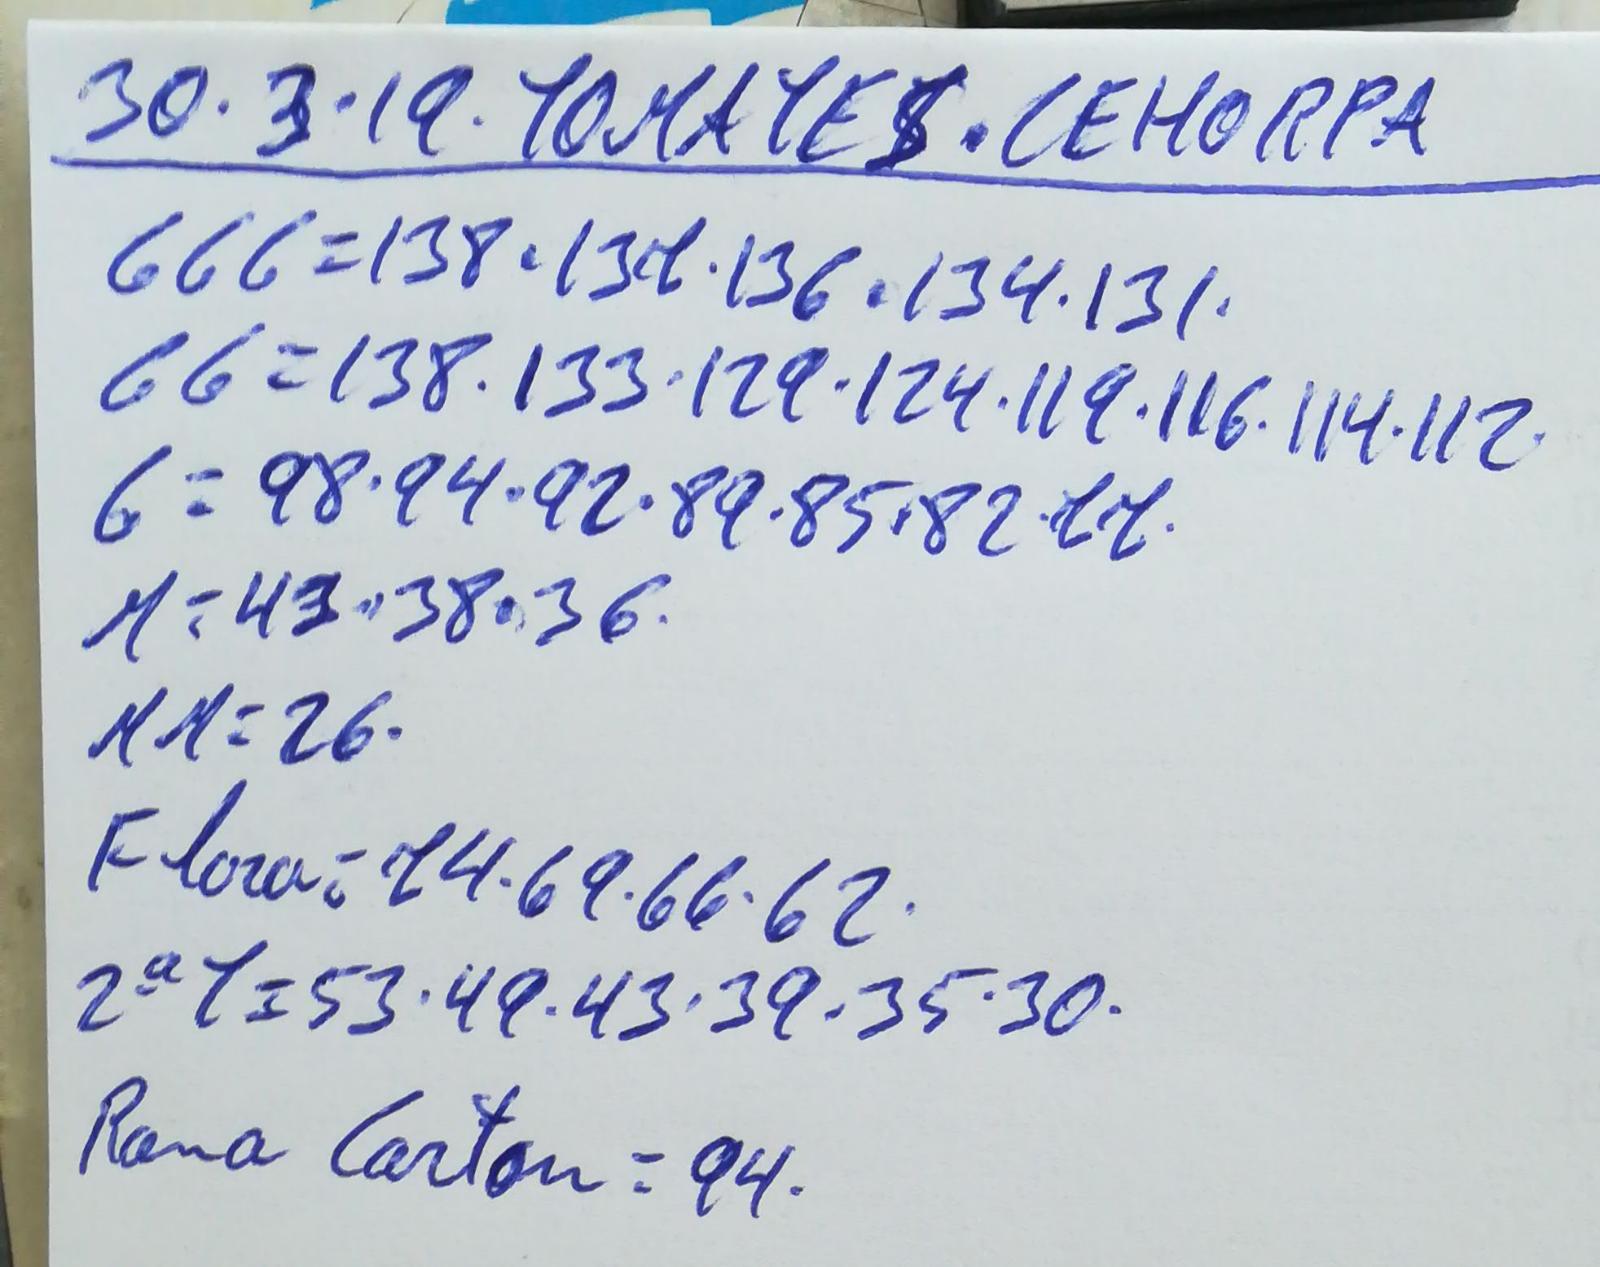 30.3.19. TOMATES. CEHORPA
GGG=138.137.136.134.131.
GG=138.133.129.124.119.116.114.112.
G=98.94.92.89.85.82.77.
M=43.38.36.
MM=26.
Flora=74.69.66.62.
2ªT=53.49.43.39.35.30.
Rama Carton=94.